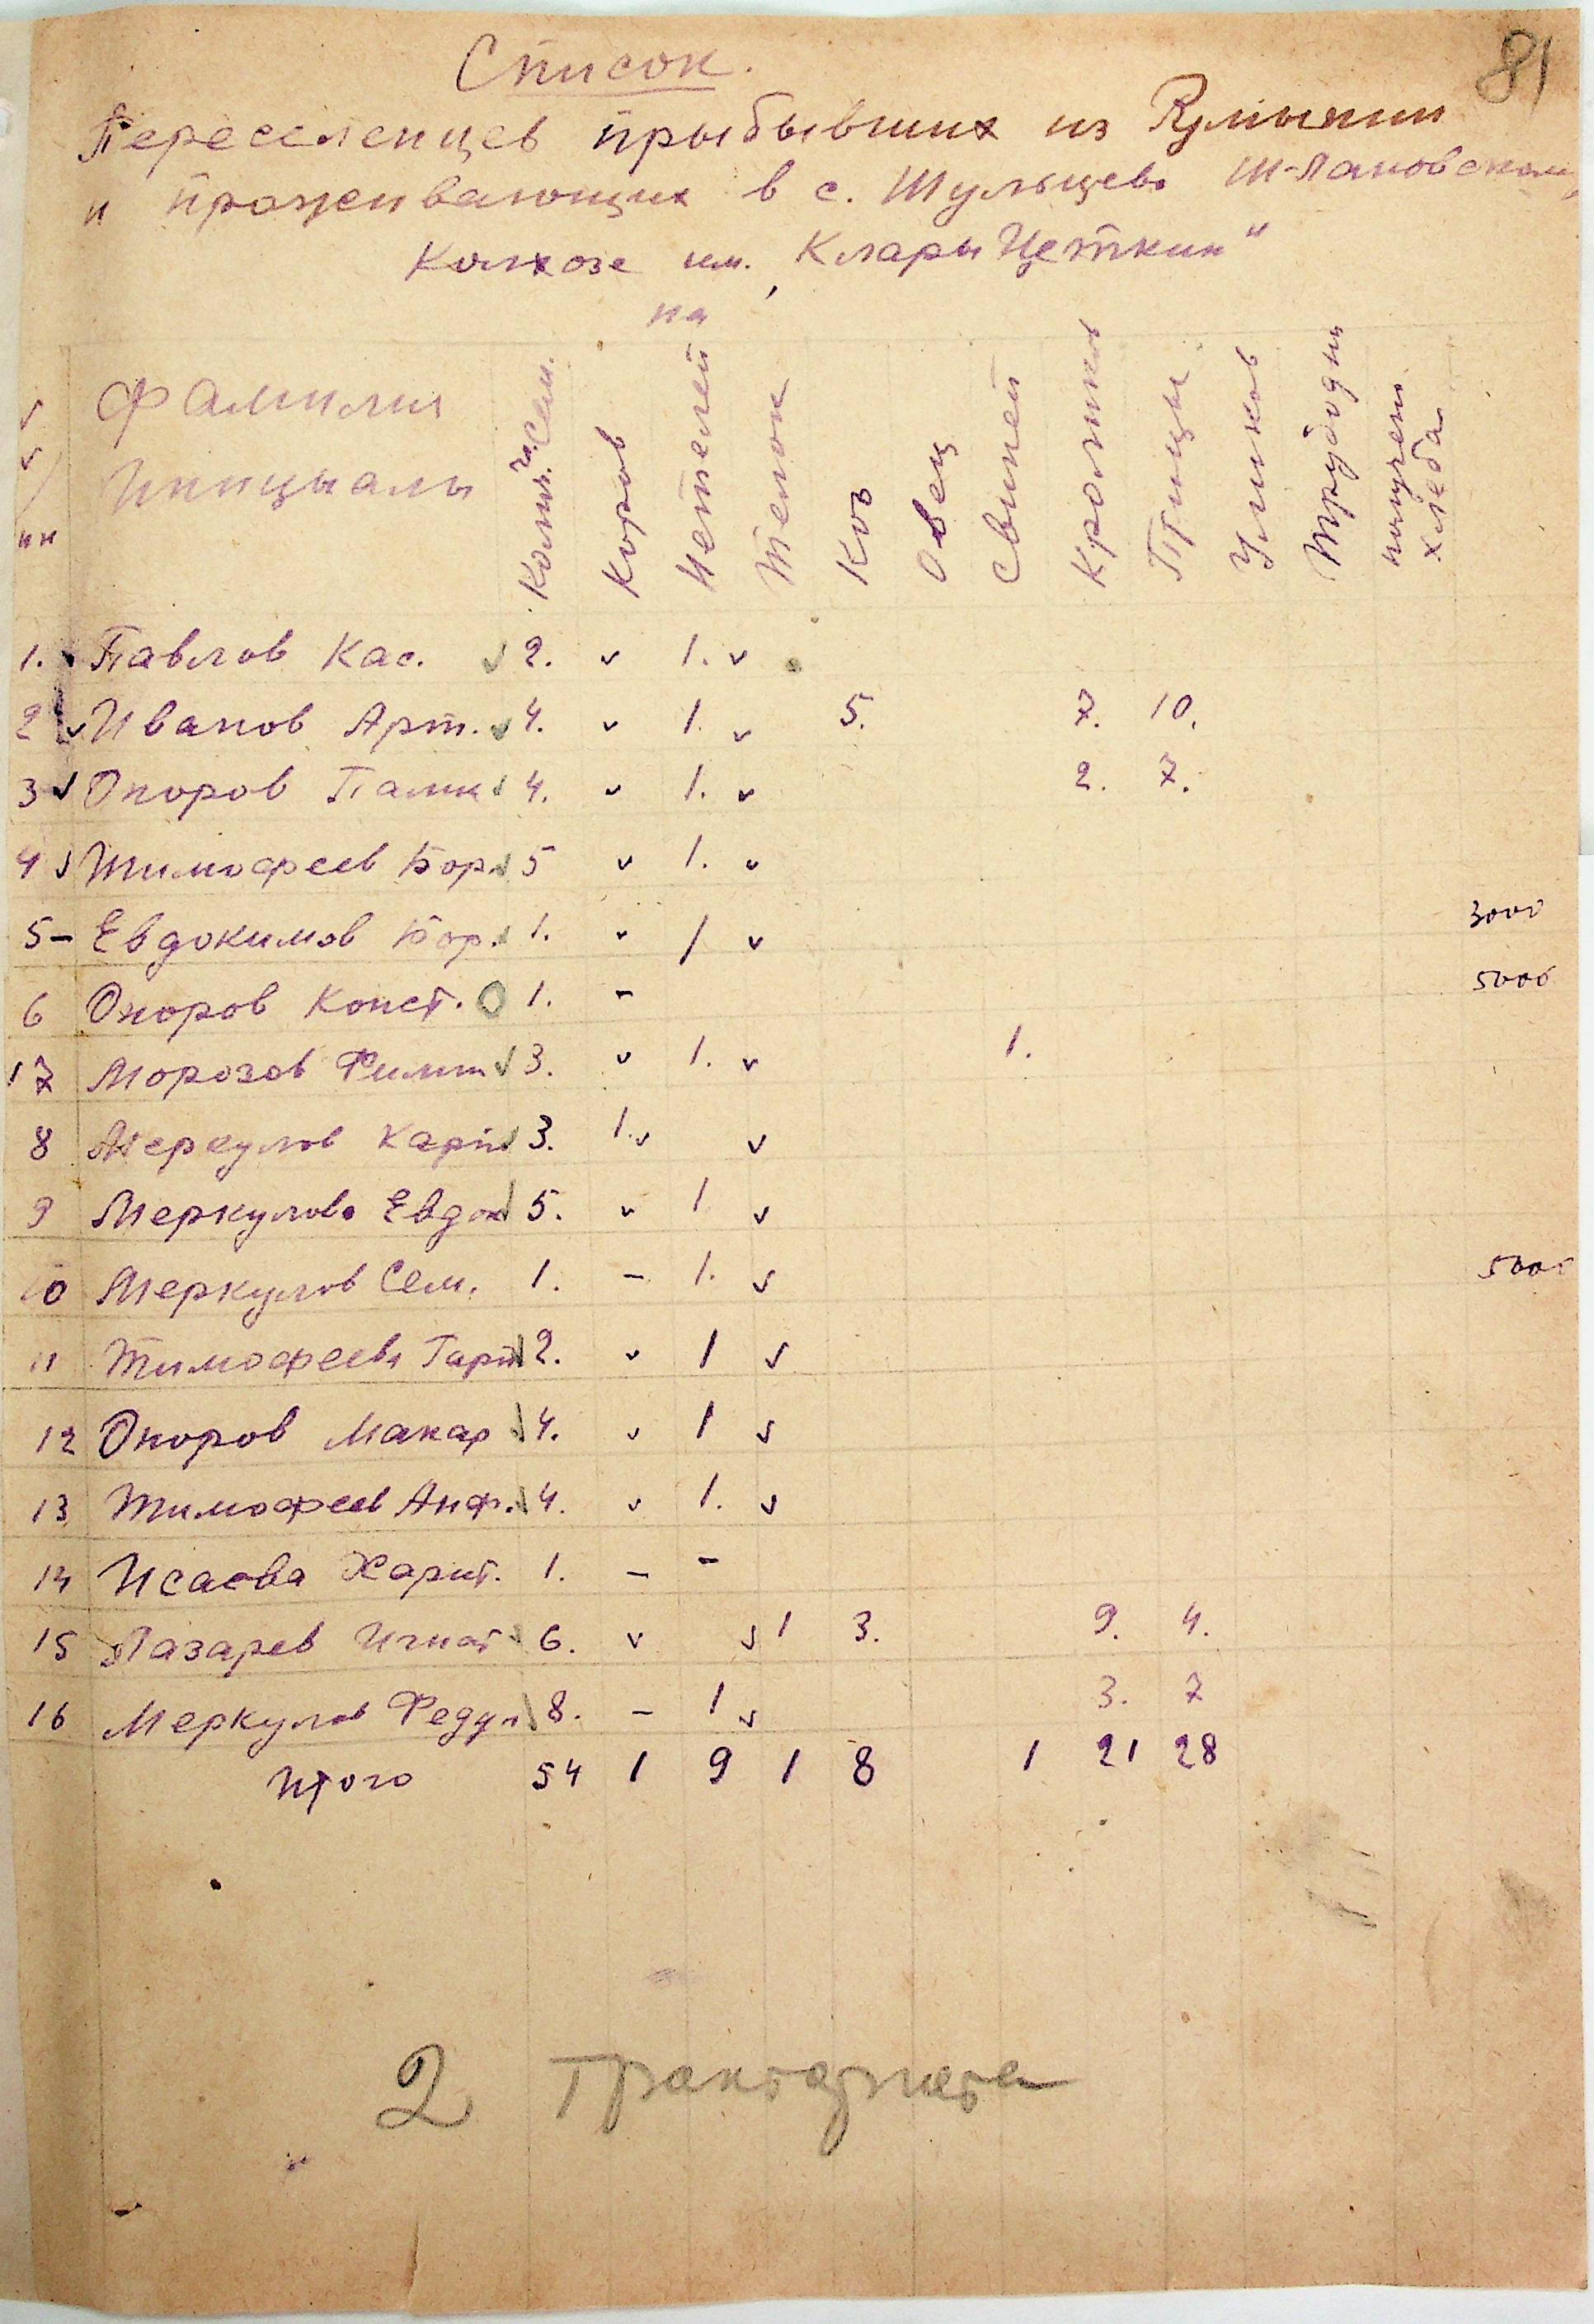 81
Список.
Переселенцев прыбывших из Румынии
и прожевающих в с. Шульцево Ш-Лановском
Колхозе им. "Клары Цеткин"
на
Фамилия Иницыалы Колич. чл. Сем. Коров Нетелей Телок Коз Овец Свиней Кролика Птицы Уликов Трудодни получено хлеба
1. Павлов Кас. √ 2. v 1. v
2 v Иванов Арт. v 4. v 1. v 5. 7. 10.
3 v Опоров Памк v 4. v 1. v 2. 7.
4 v Тимофеев Бор. v 5 v 1. v
5 – Евдокимов Бор. v 1. v 1 v 3000
6 Опоров Конст. O 1. – 5000
7 Морозов Филип v 3. v 1. v 1.
8 Меркулов Карп v 3. 1. v v
9 Меркулова Евдок v 5. v 1 v
10 Меркулов Сем. 1. – 1. v 5000
11 Тимофеева v 2. v 1 v
12 Опоров Макар v 4. v 1 v
13 Тимофеев Анф. v 4. v 1. v
14 Исаева Харит. 1. – –
15 Лазарев Игнат v 6. v v 1 3. 9. 4.
16 Меркулов Федул v 8. – 1 v 3. 7
Итого 54 1 9 1 8 1 21 28
2